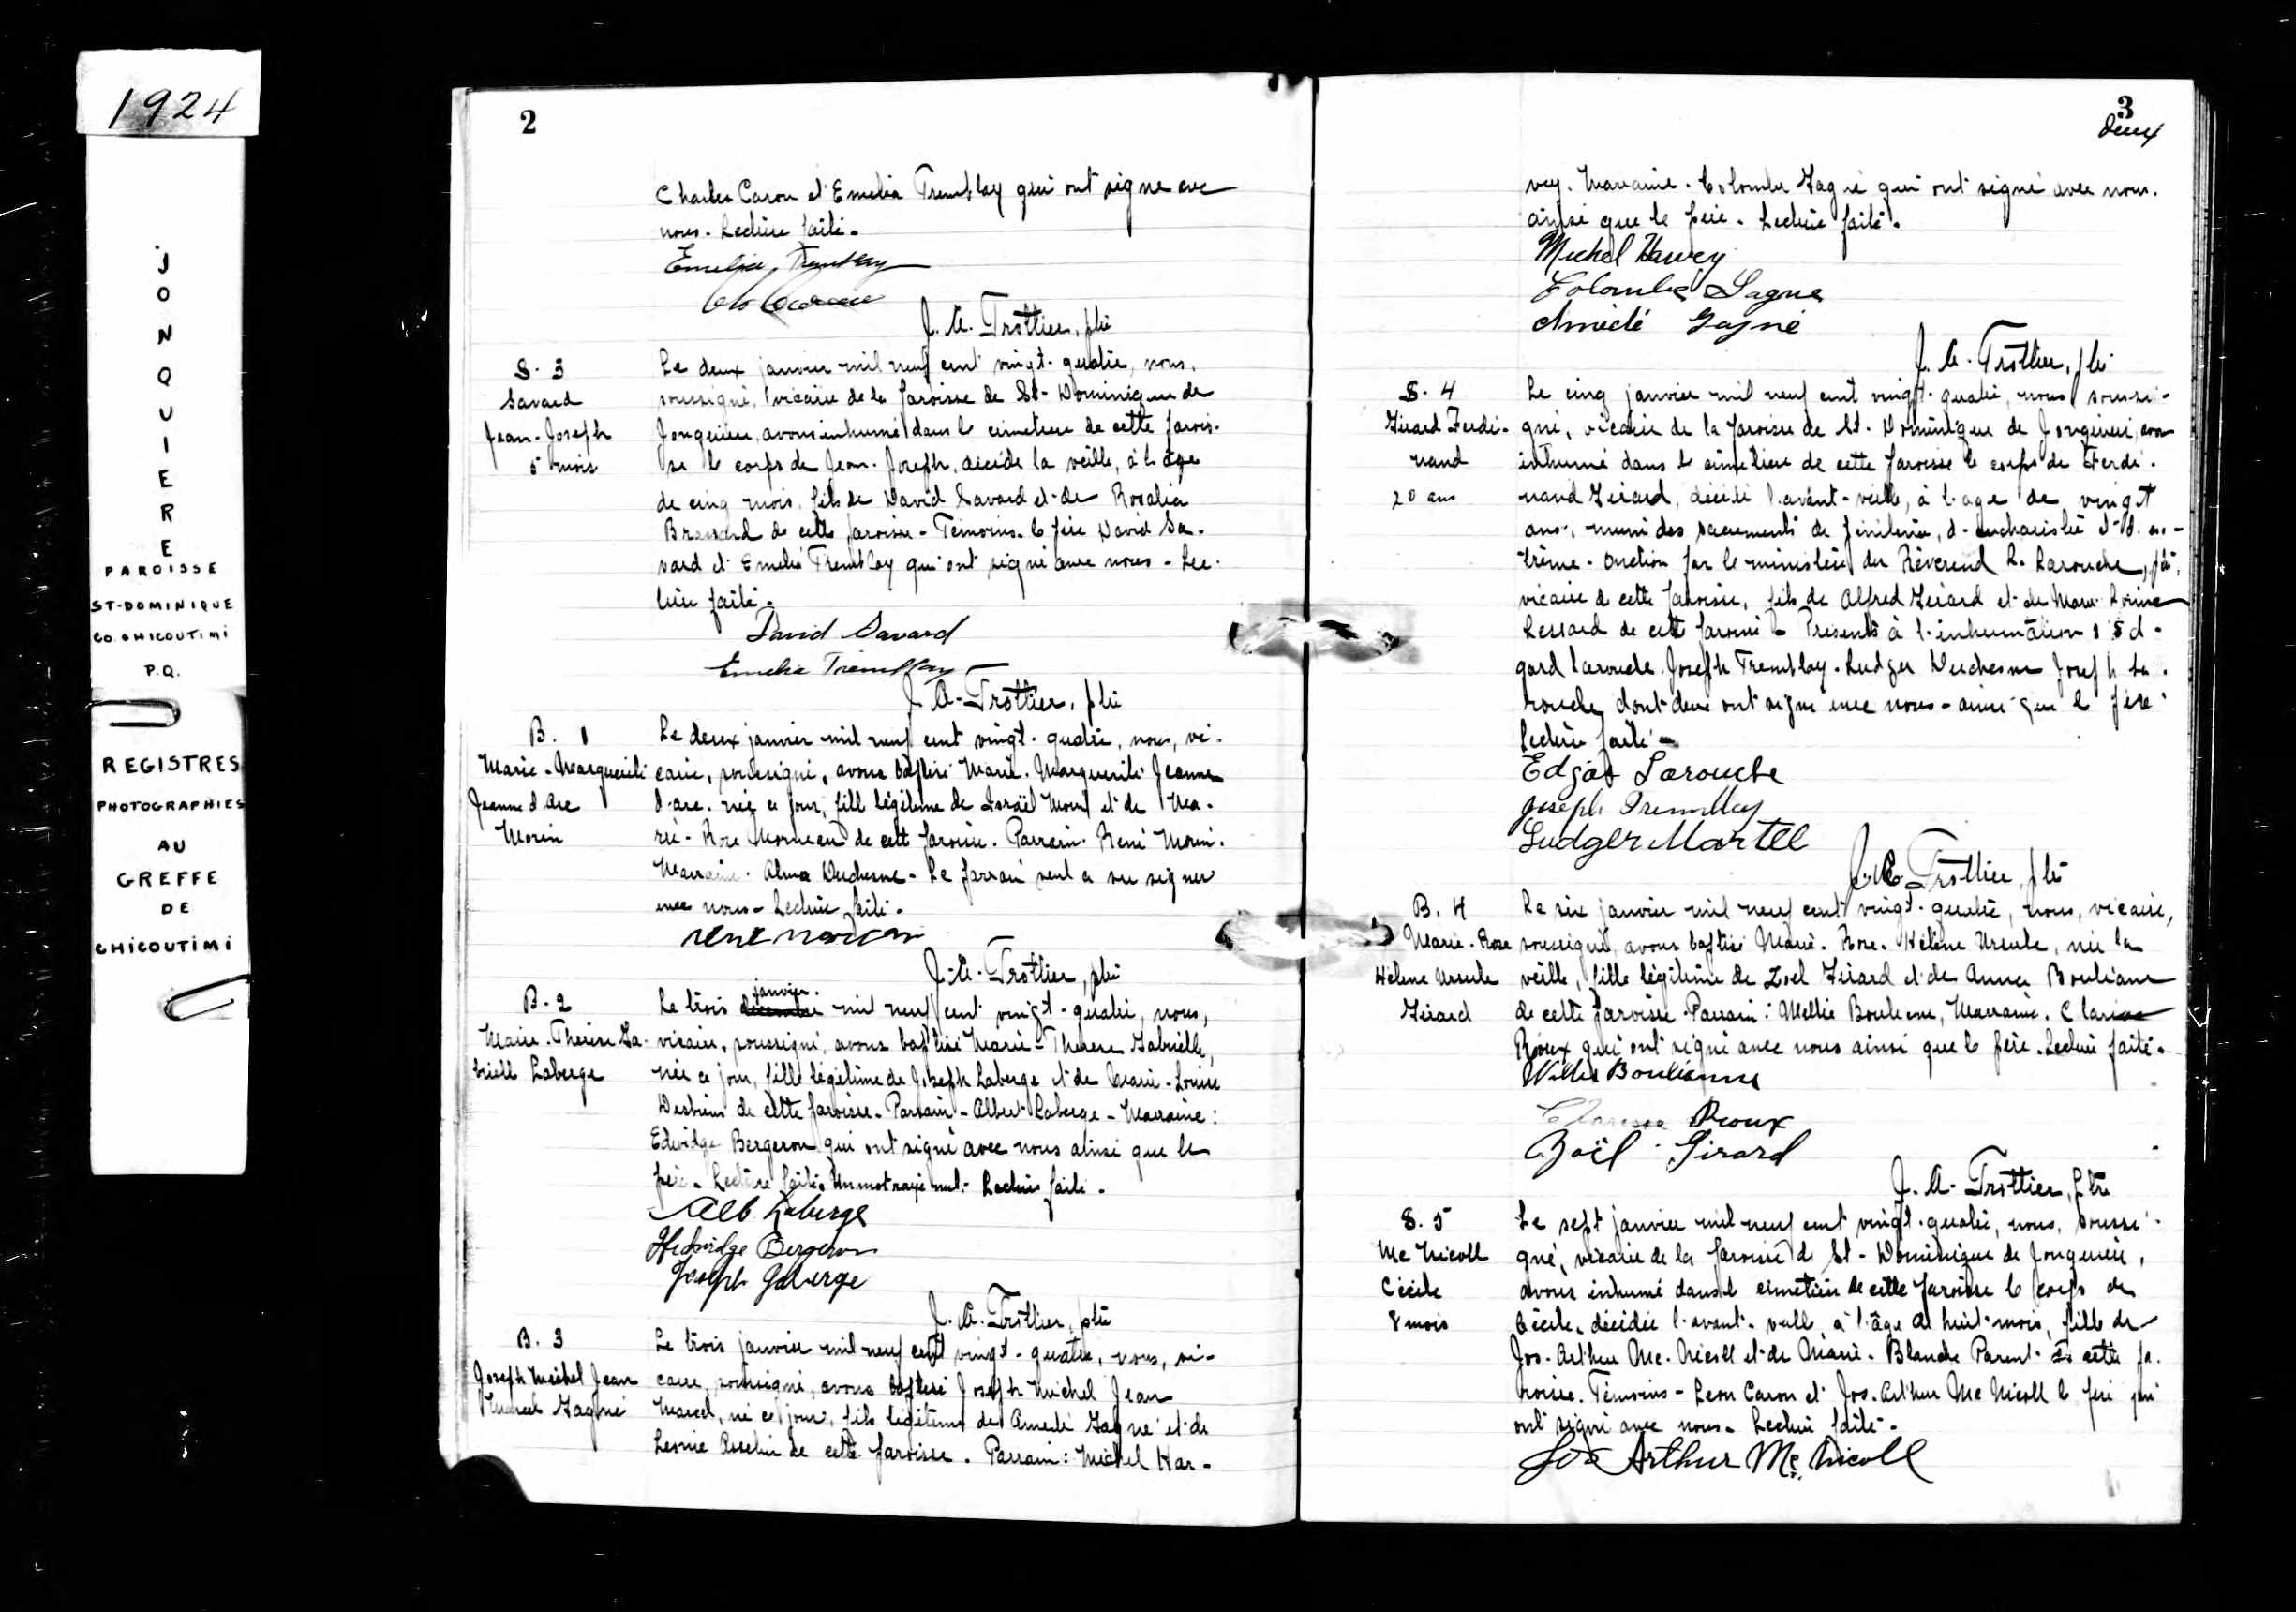 1924
JONQUIERE
PAROISSE
ST-DOMINIQUE
CO. CHICOUTIMI
P.Q.
REGISTRES
PHOTOGRAPHIES
AU
GREFFE
DE
CHICOUTIMI
2
Charles Caron et Emelia Tremblay qui ont signé avec
nous. Lecture faite.
Emelia Tremblay
J. A. Trottier, ptre
S. 3
Savard
Jean-Joseph
5 mois
Le deux janvier mil neuf cent vingt-quatre, nous,
soussigné, vicaire de la paroisse de St-Dominique de
Jonquière, avons inhumé dans le cimetière de cette parois-
se le corps de Jean-Joseph, décédé la veille, à l'âge
de cinq mois, fils de David Savard et de Rosalia
Brassard de cette paroisse - Témoins. le père David Sa-
vard et Emelia Tremblay qui ont signé avec nous - Lec-
ture faite.
David Savard
Emelia Tremblay
J. A. Trottier, ptre
B. 1
Marie-Marguerite
Jeanne d'Arc
Morin
Le deux janvier mil neuf cent vingt-quatre, nous, vi-
caire, soussigné, avons baptisé Marie-Marguerite Jeanne
d'arc, née ce jour, fille légitime de Israël Morin et de Ma-
rie-Rose Morneau de cette paroisse. Parrain. René Morin.
Marraine. Alma Duchesne - Le parrain seul a su signer
avec nous - Lecture faite.
René Morin
J. A. Trottier, ptre
B. 2
Marie-Thérèse Ga-
brielle Laberge
janvier.
Le trois décembre mil neuf cent vingt-quatre, nous,
vicaire, soussigné, avons baptisé Marie-Thérèse Gabrielle,
née ce jour, fille légitime de Joseph Laberge et de Marie-Louise
Desbiens de cette paroisse - Parrain - Albert Laberge - Marraine:
Edwidge Bergeron qui ont signé avec nous ainsi que le
père. Lecture faite. Un mot rayé nul. Lecture faite.
Alb Laberge
Hedwidge Bergeron
Joseph Laberge
J. A. Trottier, ptre
B. 3
Joseph Michel Jean
Marcel Gagné
Le trois janvier mil neuf cent vingt-quatre, nous, vi-
caire, soussigné, avons baptisé Joseph Michel Jean
Marcel, né ce jour, fils légitime de Amédé Gagné et de
Leonie Asselin de cette paroisse. Parrain: Michel Har-
3
deux
vey. Marraine. Colombe Gagné qui ont signé avec nous.
ainsi que le père. Lecture faite.
Michel Harvey
Colombe Gagné
Amédé Gagné
J. A. Trottier, ptre
S. 4
Girard Ferdi-
nand
20 ans
Le cinq janvier mil neuf cent vingt-quatre, nous soussi-
gné, vicaire de la paroisse de St-Dominique de Jonquière, avons
inhumé dans le cimetière de cette paroisse le corps de Ferdi-
nand Girard, décédé l'avant-veille, à l'âge de vingt
ans, muni des sacrements de pénitence, d'eucharistie et d'ex-
trême-onction par le ministère du Révérend L. Larouche, ptre,
vicaire de cette paroisse, fils de Alfred Girard et de Marie Louise
Lessard de cette paroisse - Présents à l'inhumation: Ed-
gard Larouche. Joseph Tremblay. Ludger Duchesne Joseph La-
rouche dont deux ont signé avec nous - ainsi que le père
lecture faite -
Edgar Larouche
Joseph Tremblay
Ludger Martel
J. A. Trottier, ptre
B. 4
Marie-Rose
Hélène Ursule
Girard
Le six janvier mil neuf cent vingt-quatre, nous, vicaire,
soussigné, avons baptisé Marie-Rose-Hélène Ursule, née la
veille, fille légitime de Zoël Girard et de Anna Boulianne
de cette paroisse. Parrain: Wellie Boulianne, Marraine. Clarisse
Rioux qui ont signé avec nous ainsi que le père. Lecture faite.
Willie Boulianne
Clarisse Rioux
Zoël Girard
J. A. Trottier, ptre
S. 5
Mc Nicoll
Cécile
8 mois
Le sept janvier mil neuf cent vingt-quatre, nous, soussi-
gné, vicaire de la paroisse de St-Dominique de Jonquière,
avons inhumé dans le cimetière de cette paroisse le corps de
Cécile, décédée l'avant-veille, à l'âge de huit mois, fille de
Jos. Arthur Mc. Nicoll et de Marie-Blanche Parent de cette pa-
roisse. Témoins - Leon Caron et Jos. Arthur Mc Nicoll le père qui
ont signé avec nous. Lecture faite.
Jos Arthur Mc. Nicoll